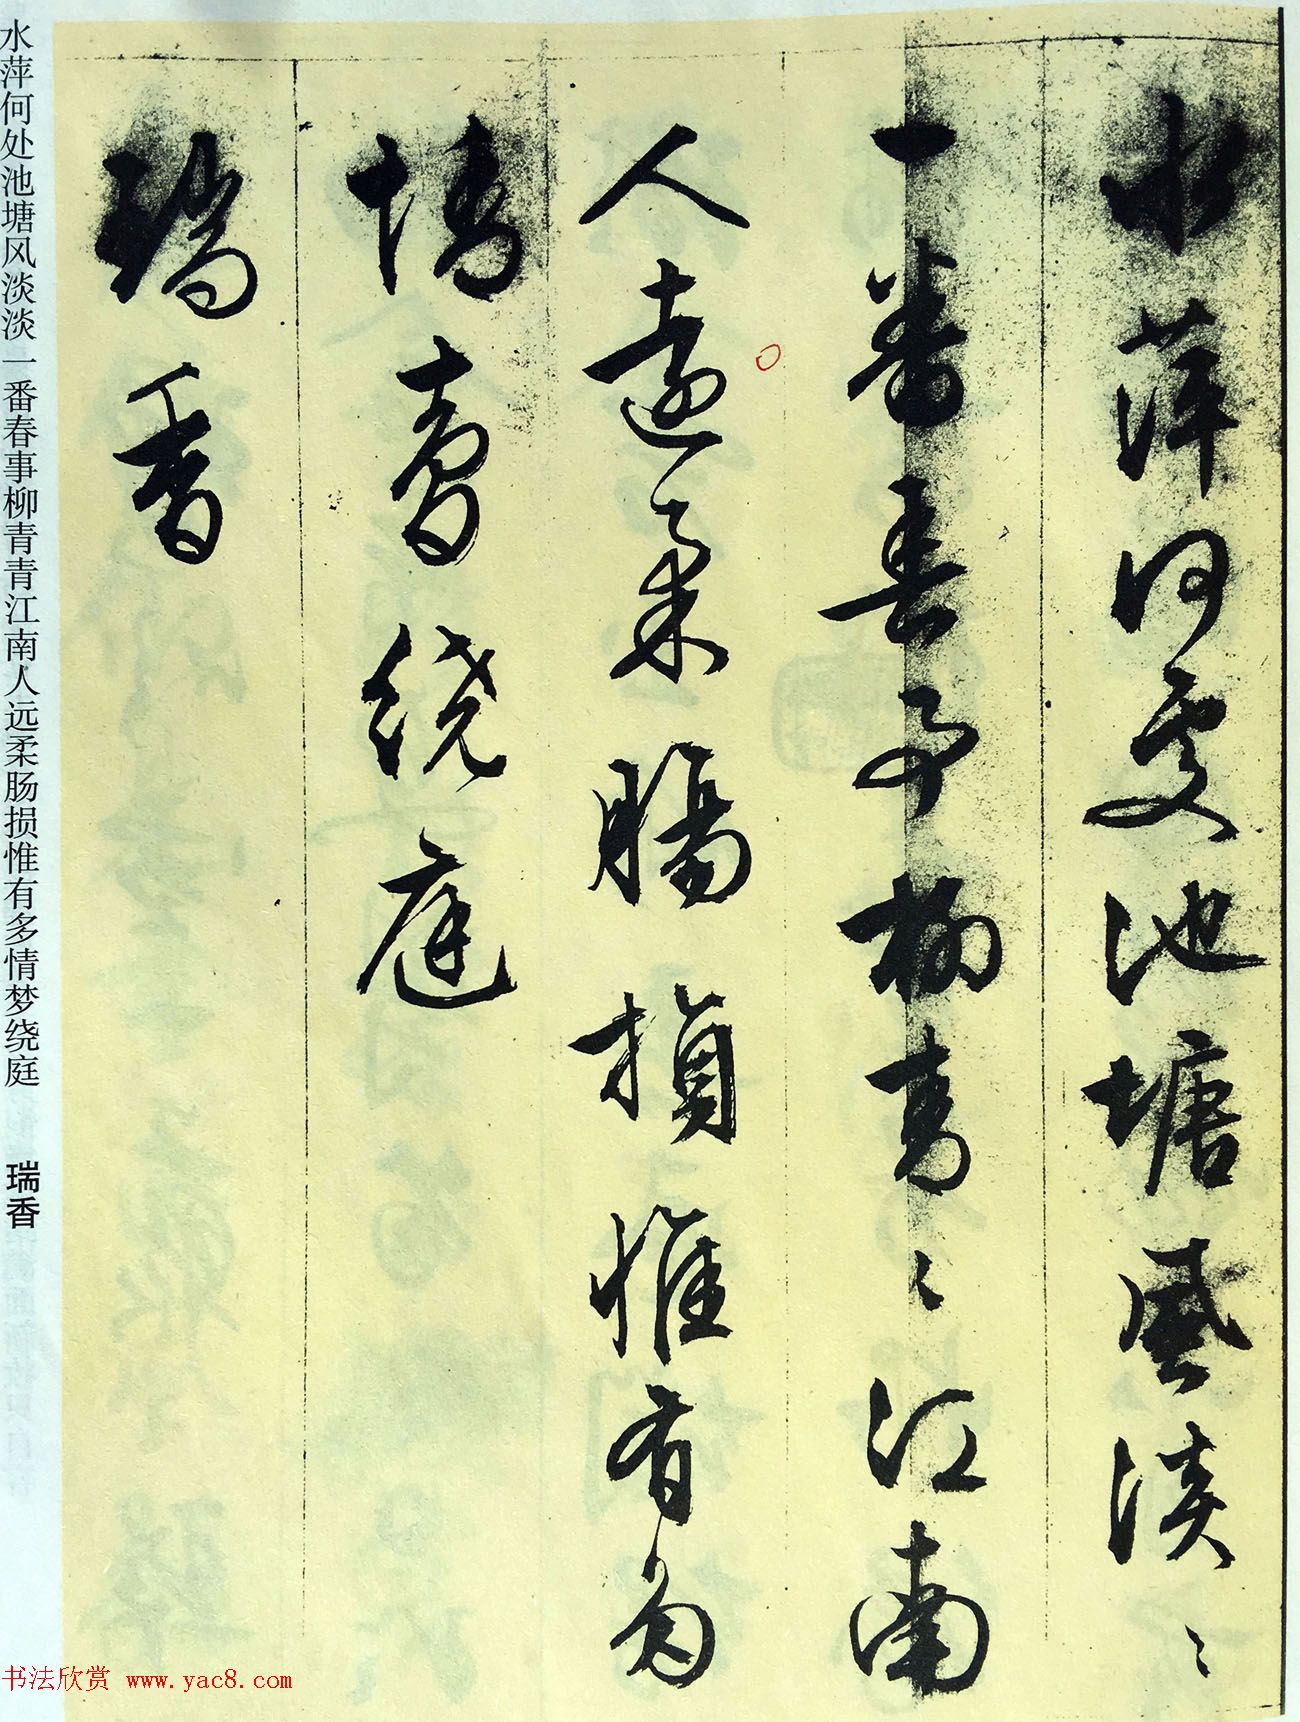 水萍何處池塘風淡〻
一番春事柳青〻江南
人遠柔腸損惟有多
情夢绕庭
瑞香
水萍何处池塘风淡淡一番春事柳青青江南人远柔肠损惟有多情梦绕庭 瑞香
书法欣赏 www.yac8.com